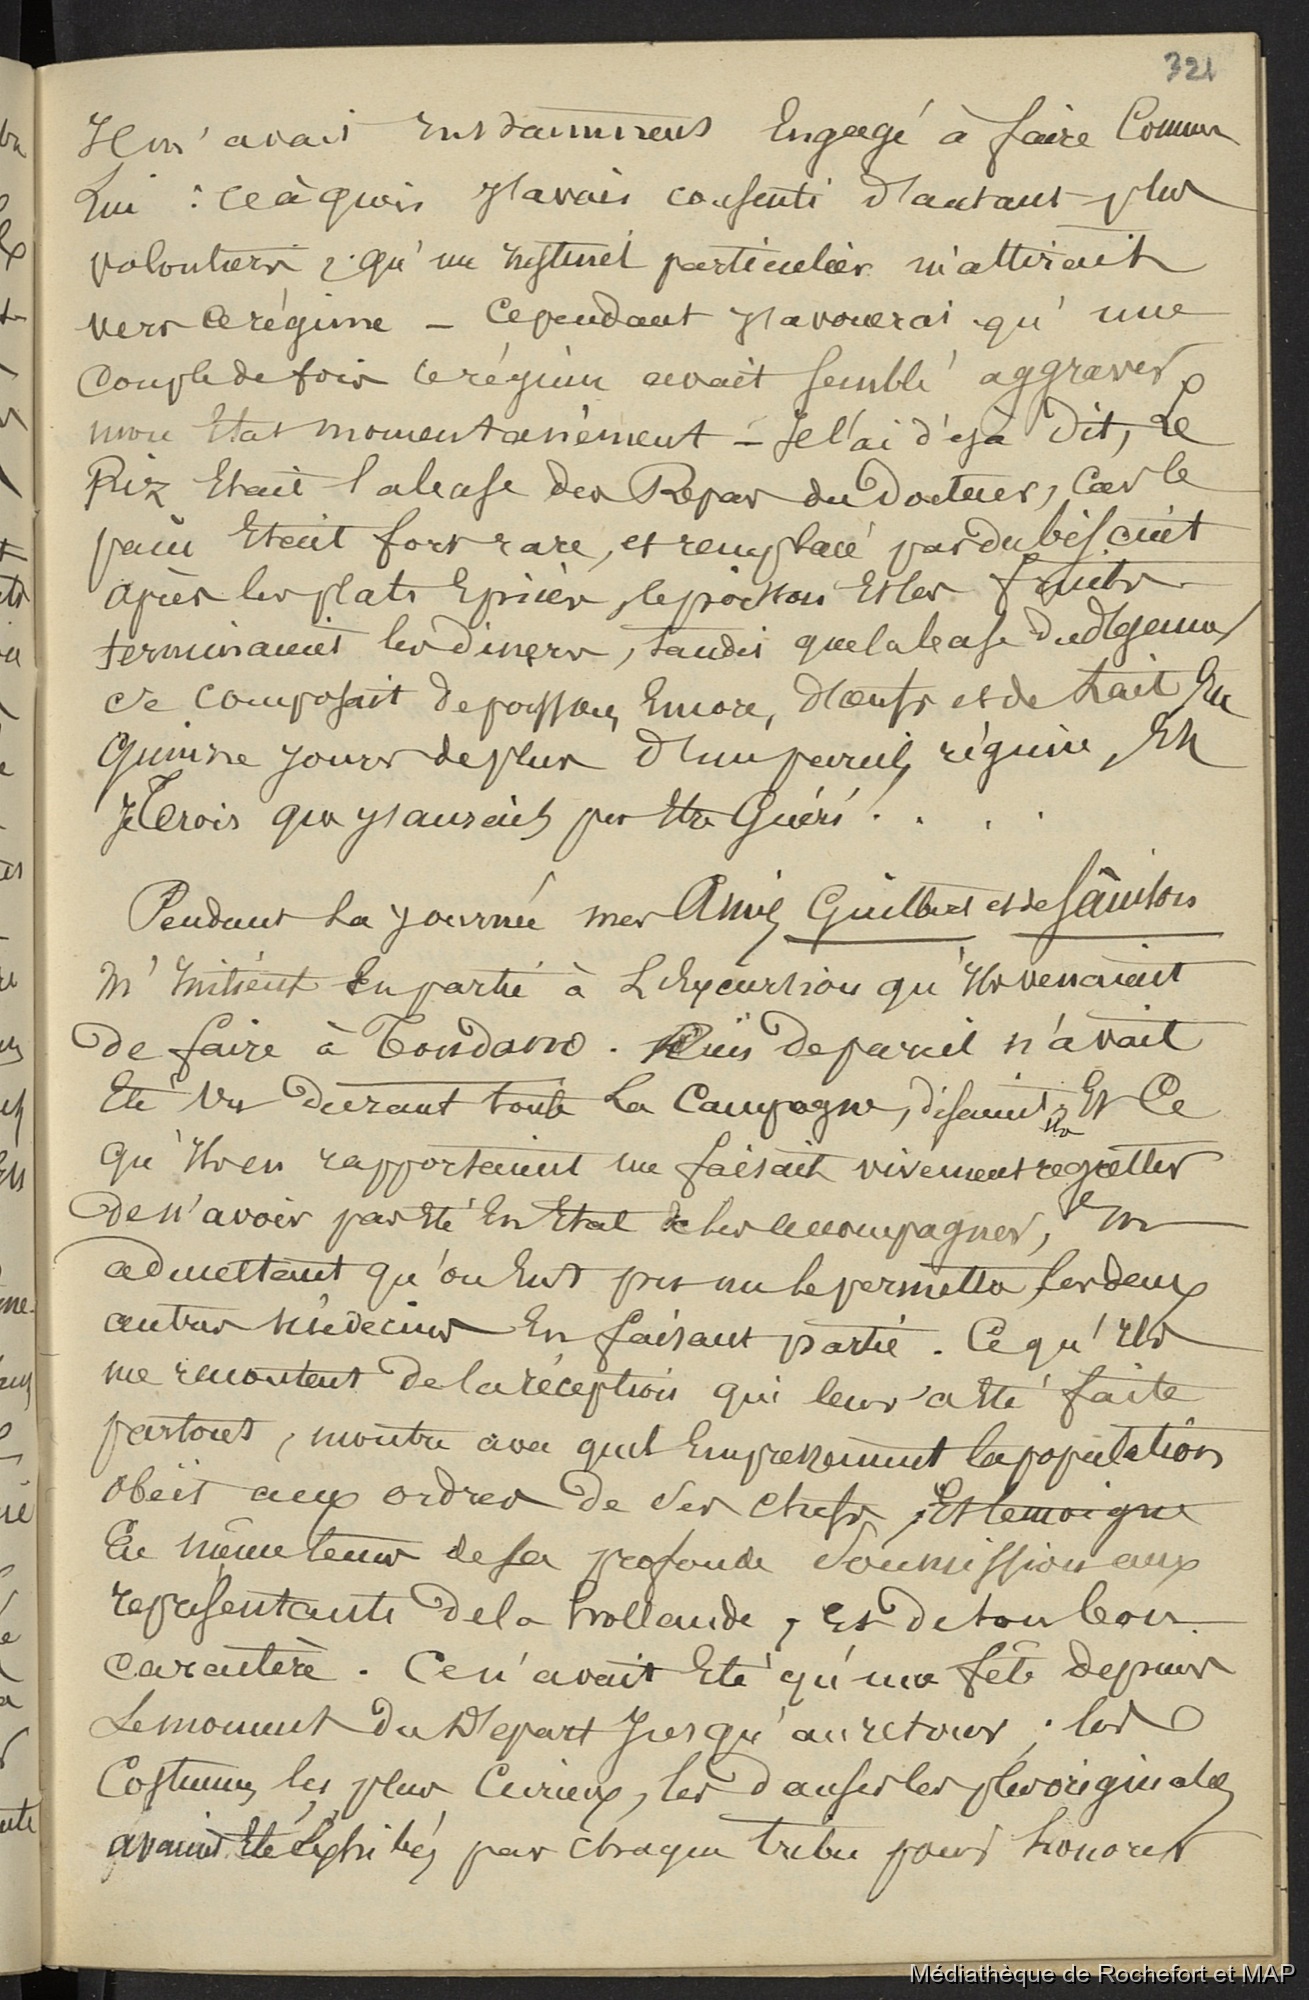 321
Il m'avait instamment Engagé à faire Comme
Lui : ce à quoi j'avais consenti d'autant plus
volontiers, qu'un instinct particulier m'attirait
vers ce régime – Cependant j'avouerai qu'une
Couple de fois ce régime avait semblé aggraver
mon Etat momentanément – Je l'ai déjà dit, Le
Riz Etait la base des Repas du Docteur, Car le
pain Etait fort rare, et remplacé par du biscuit
après les plats Epicés, le poisson Et les fruits
terminaient les diners, tandis que la base du déjeuner
se composait de poisson Encore, d'œufs et de lait En
Quinze jours de plus d'un pareil régime, Eh
Je Crois que j'aurais pu Etre Guéri . . . .
Pendant La journée mes Amis Guilbert et de Saintois
M'initient En partie à L'Excursion qu'ils venaient
De faire à Tondano. Rien de pareil n'avait
Eté Vu durant toute La Campagne, disaient-ils Et Ce
Qu'ils en rapportaient me faisait vivement regretter
De n'avoir pas Eté En Etat de les accompagner, En
admettant qu'on Eut pu me le permettre, les deux
autres Médecins En faisant partie. Ce qu'ils
me racontent de la réception qui leur a Eté faite
partout, montre avec quel Empressement la population
Obéit aux ordres de ses Chefs, Et témoigne
En même temps de sa profonde Soumission aux
représentants de la Hollande, Et de son bon
Caractère. Ce n'avait Eté qu'une fête depuis
Le moment du Départ Jusqu'au retour ; les
Costumes les plus Curieux, les danses les plus originales
avaient Eté Exhibés par chaque tribu pour honorer
Médiathèque de Rochefort et MAP